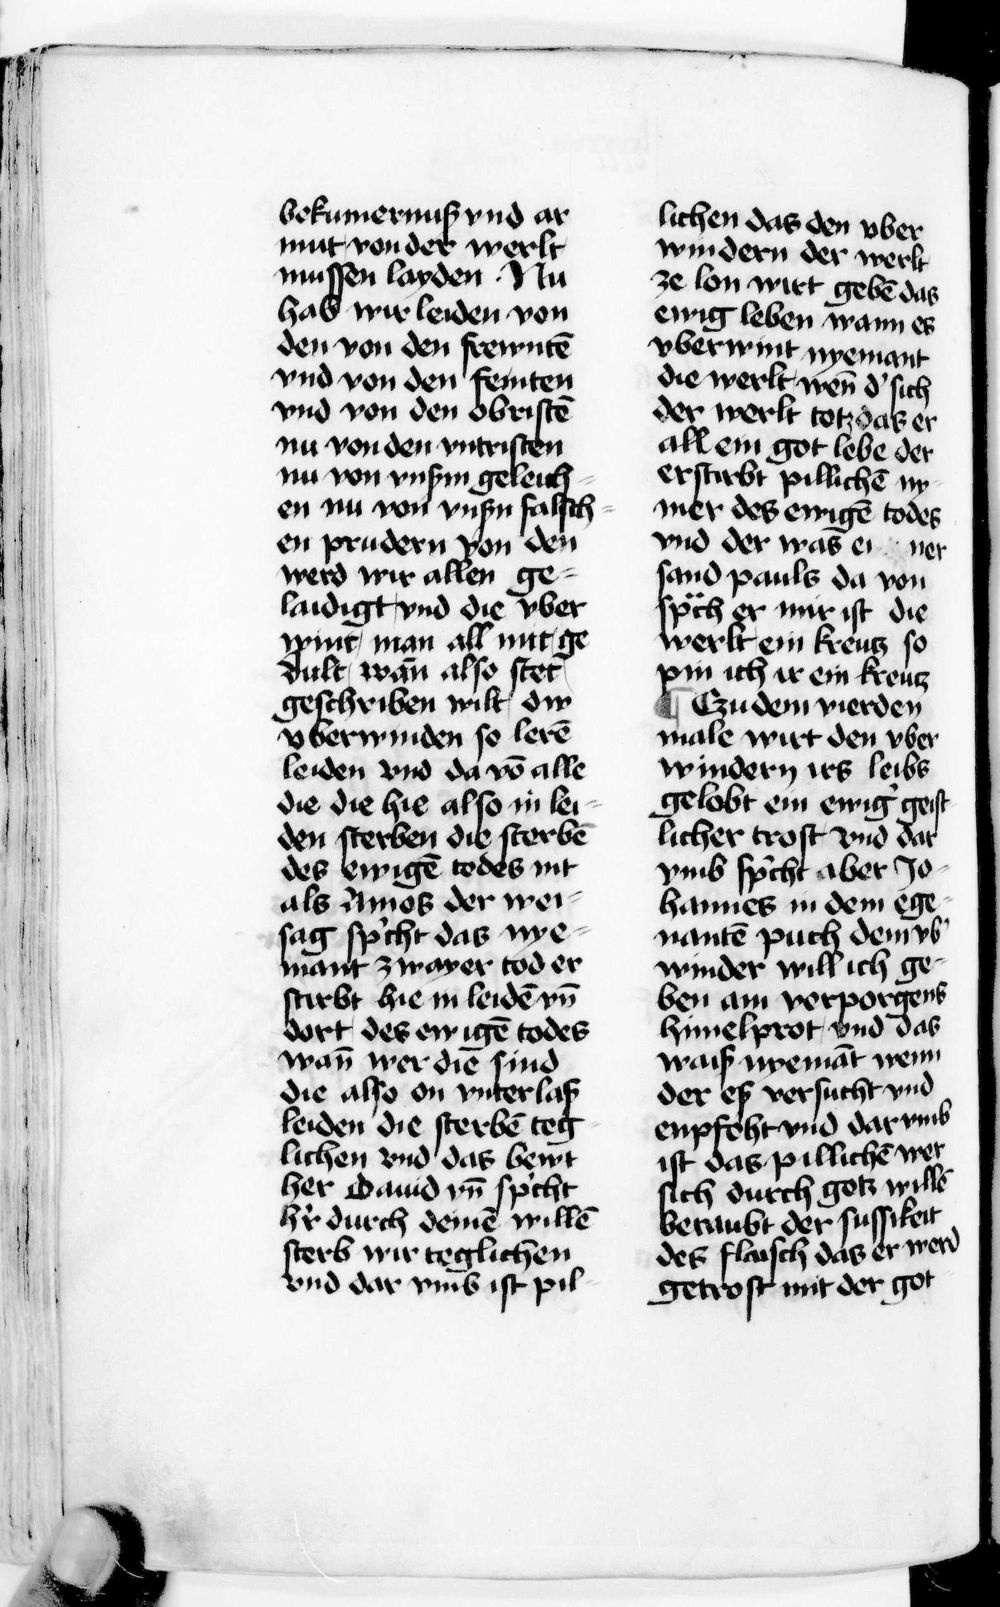 bekumernuß vnd ar
mut von der werlt
mussen layden. Nu
hab wir leiden von
den von den frewntē
vnd von den feinten
vnd von den obristē
nu von den vntristen
nu von vnßm geleich-
en nu von vnßn falsch-
en prudern von den
werd wir allen ge-
laidigt vnd die vber
wint man all mit ge
dult wān also stet
geschriben wilt dw
vberwinden so lerē
leiden vnd da vō alle
die die hie also in lei-
den sterben die sterbē
des ewigē todes nit
als Amos der wei-
sag sp'cht das nye-
mant zwayer tod er
stirbt hie in leidē vn̄
dort des ewigē todes
wan̄ wer die sind
die also on vnterlaß
leiden die sterbē teg
lichen vnd das bewt
her Dauid vn̄ sp'cht
h'r durch deinē willē
sterb wir teglichen
vnd dar vmb ist pil-
lichen das den vber
windern der werlt
ze lon wirt gebē das
ewig leben wann es
vberwint nyemant
die werlt wen̄ d' sich
der werlt totz das er
all ein got lebe der
erstirbt pillichē ny-
mer des ewigē todes
vnd der was ei ner
sand pauls da von
spͣch er mir ist die
werlt ein kreutz so
pin ich ir ein kreutz
¶ Czu dem vierden
male wirt den vber
windern irs leibs
gelobt ein ewig' geist
licher trost vnd dar
vmb sp'cht aber Jo-
hannes in dem ege-
nantē puch dem vb'
winder will ich ge-
ben ain verporgens
himelprot vnd das
waiß nyemāt wenn
der eß versucht vnd
enpfeht vnd dar vmb
ist das pillichē wer
sich durch gotz willē
beraubt der sussikeit
des flaisch das er werd
getrost mit der got